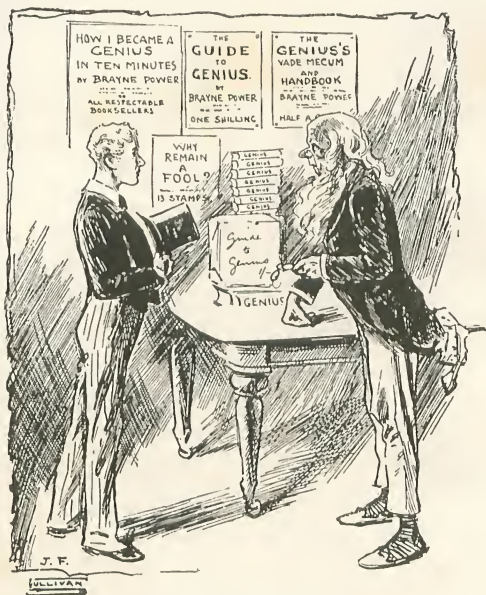 HOW I BECAME A
GENIUS
IN TEN MINUTES
BY BRAYNE POWER
ALL RESPECTABLE
BOOKSELLERS
THE
GUIDE
TO
GENIUS.
BY
BRAYNE POWER
ONE SHILLING
THE
GENIUS'S
VADE MECUM
AND
HANDBOOK
BRAYNE POWER
HALF A
WHY
REMAIN
A
FOOL?
13 STAMPS
GENIUS
GENIUS
GENIUS
GENIUS
GENIUS
GENIUS
GENIUS
Guide
to
Genius
1/-
GENIUS
J. F.
SULLIVAN